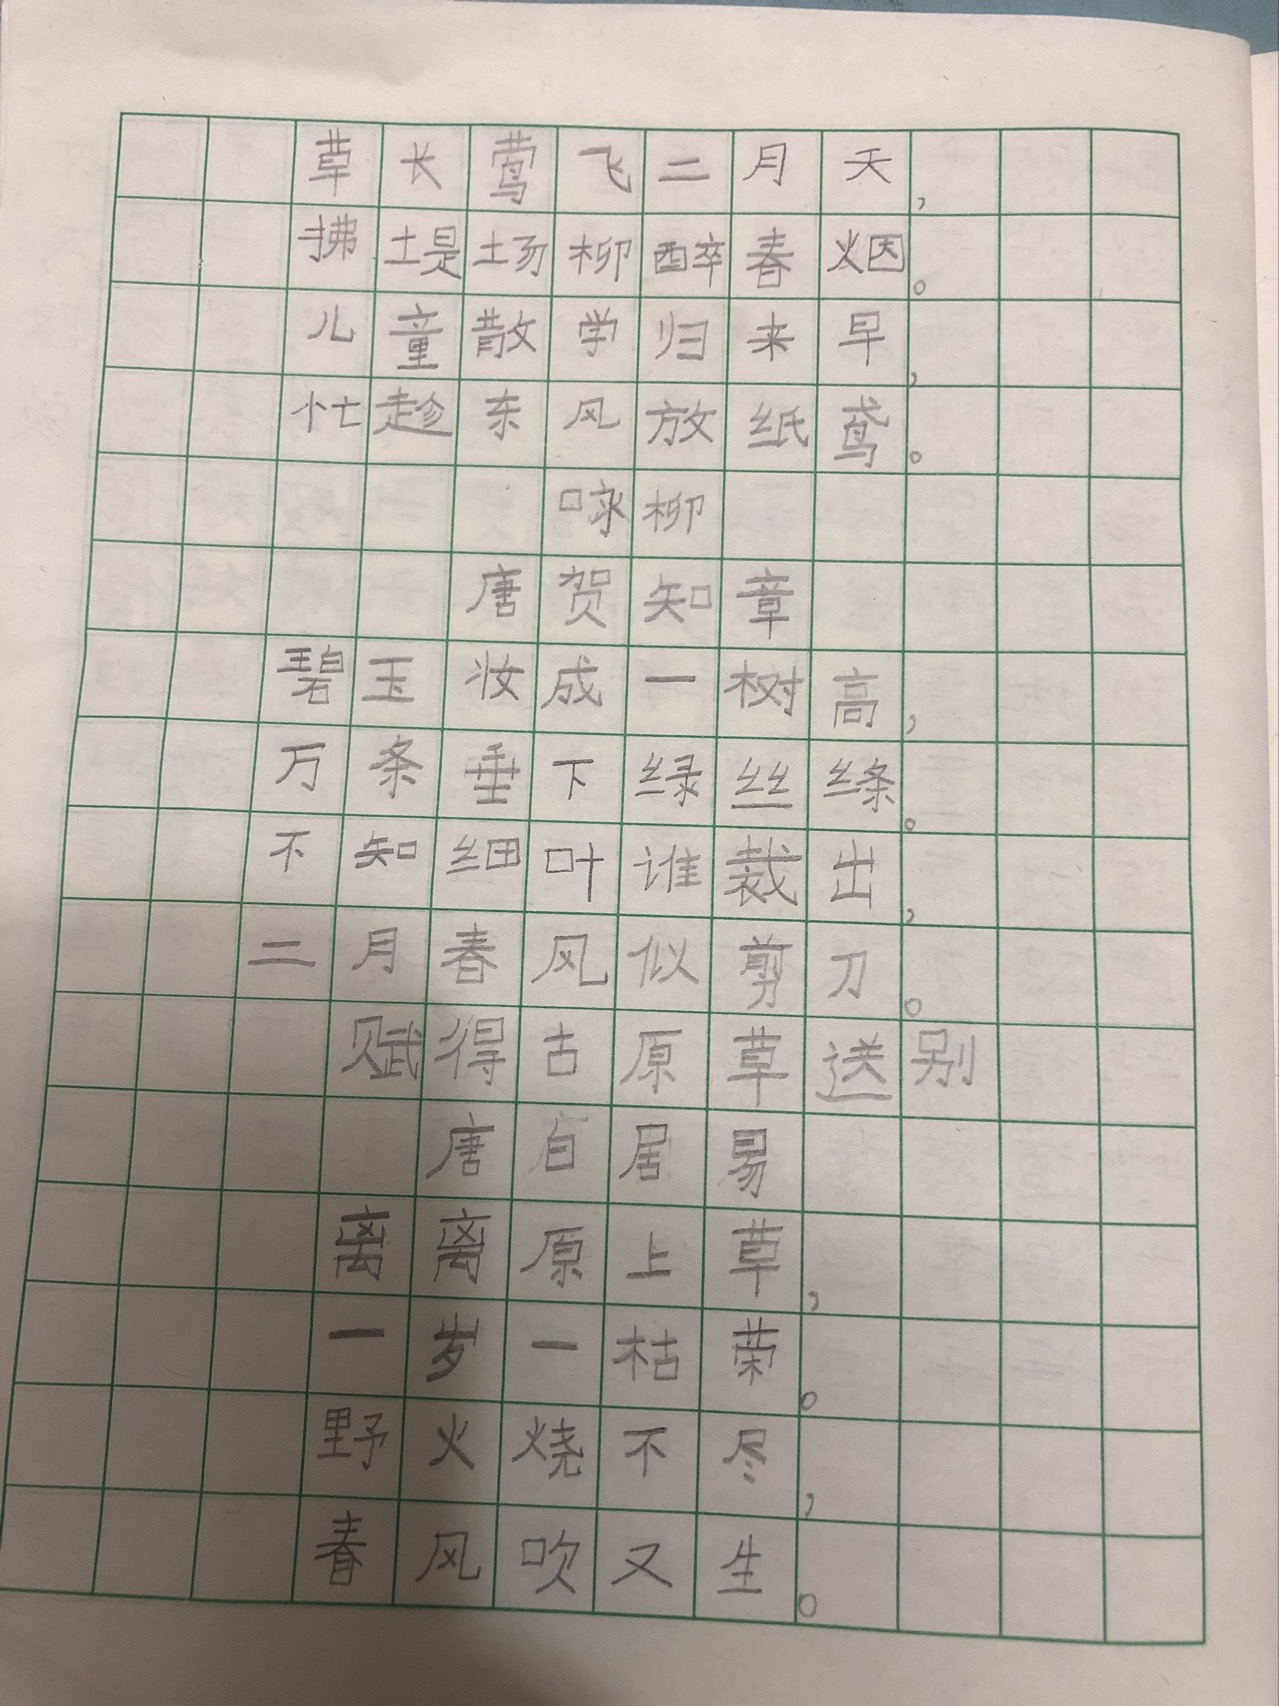 草长莺飞二月天，
拂堤场柳醉春烟。
儿童散学归来早，
忙趁东风放纸鸢。
咏柳
唐贺知章
碧玉妆成一树高，
万条垂下绿丝绦。
不知细叶谁裁出，
二月春风似剪刀。
赋得古原草送别
唐白居易
离离原上草，
一岁一枯荣。
野火烧不尽，
春风吹又生。